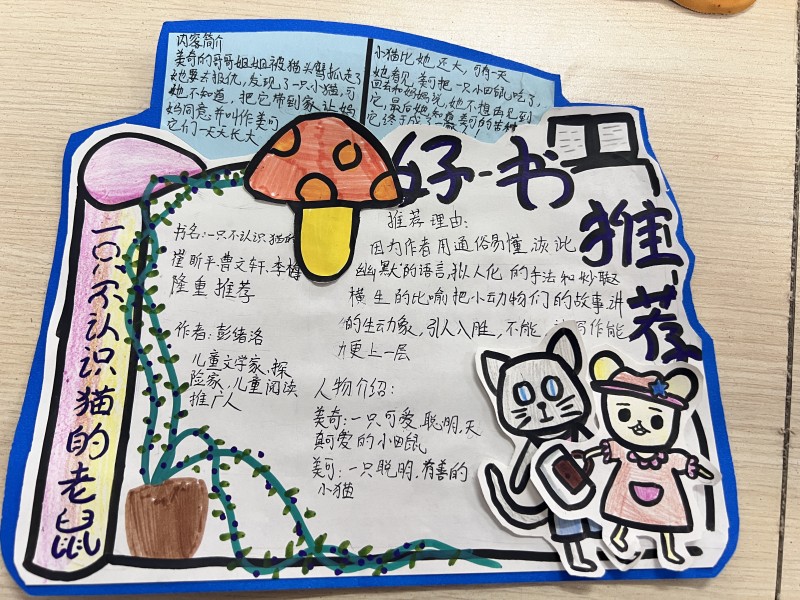 内容简介
美奇的哥哥姐姐被猫头鹰抓走了
她要去报仇,发现了一只小猫,可
她不知道,把它带到家,让妈
妈同意,并叫作美可
它们一天天长大
小猫比她还大,有一天
她看见美可把一只小田鼠吃了,
回去和妈妈说,她不想再见到
它,最后她知道美可的苦衷
它终于成
好书
推荐
一只不认识猫的老鼠
书名:一只不认识猫的
崔昕平、曹文轩、李
隆重推荐
作者:彭绪洛
儿童文学家、探
险家、儿童阅读
推广人
推荐理由:
因为作者用通俗易懂、诙比
幽默的语言,拟人化的手法和妙趣
横生的比喻把小动物们的故事讲
的生动象,引人入胜,不能 写作能
力更上一层
人物介绍:
美奇:一只可爱、聪明、天
真可爱的小田鼠
美可:一只聪明,有善的
小猫